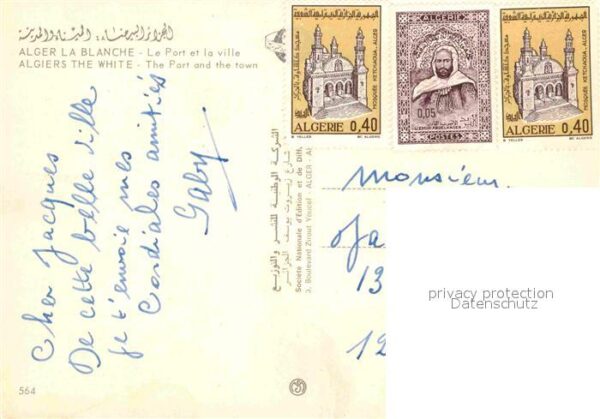 الجزائر البيضاء، الميناء والمدينة
ALGER LA BLANCHE - Le Port et la ville
ALGIERS THE WHITE - The Port and the town
Cher Jacques
De cette belle ville
je t'envoie mes
Cordiales amitiés
Gaby
564
الشركة الوطنية للنشر والتوزيع
شارع زيروت يوسف الجزائر
Société Nationale d'Edition et de Diff.
Boulevard Zirout Youcef - ALGER
MOSQUÉE KETCHAOUA, ALGER
ALGERIE 0,40
ALGERIE
0,05
POSTES
MOSQUÉE KETCHAOUA, ALGER
ALGERIE 0,40
Monsieur
Ja
13
12
privacy protection
Datenschutz